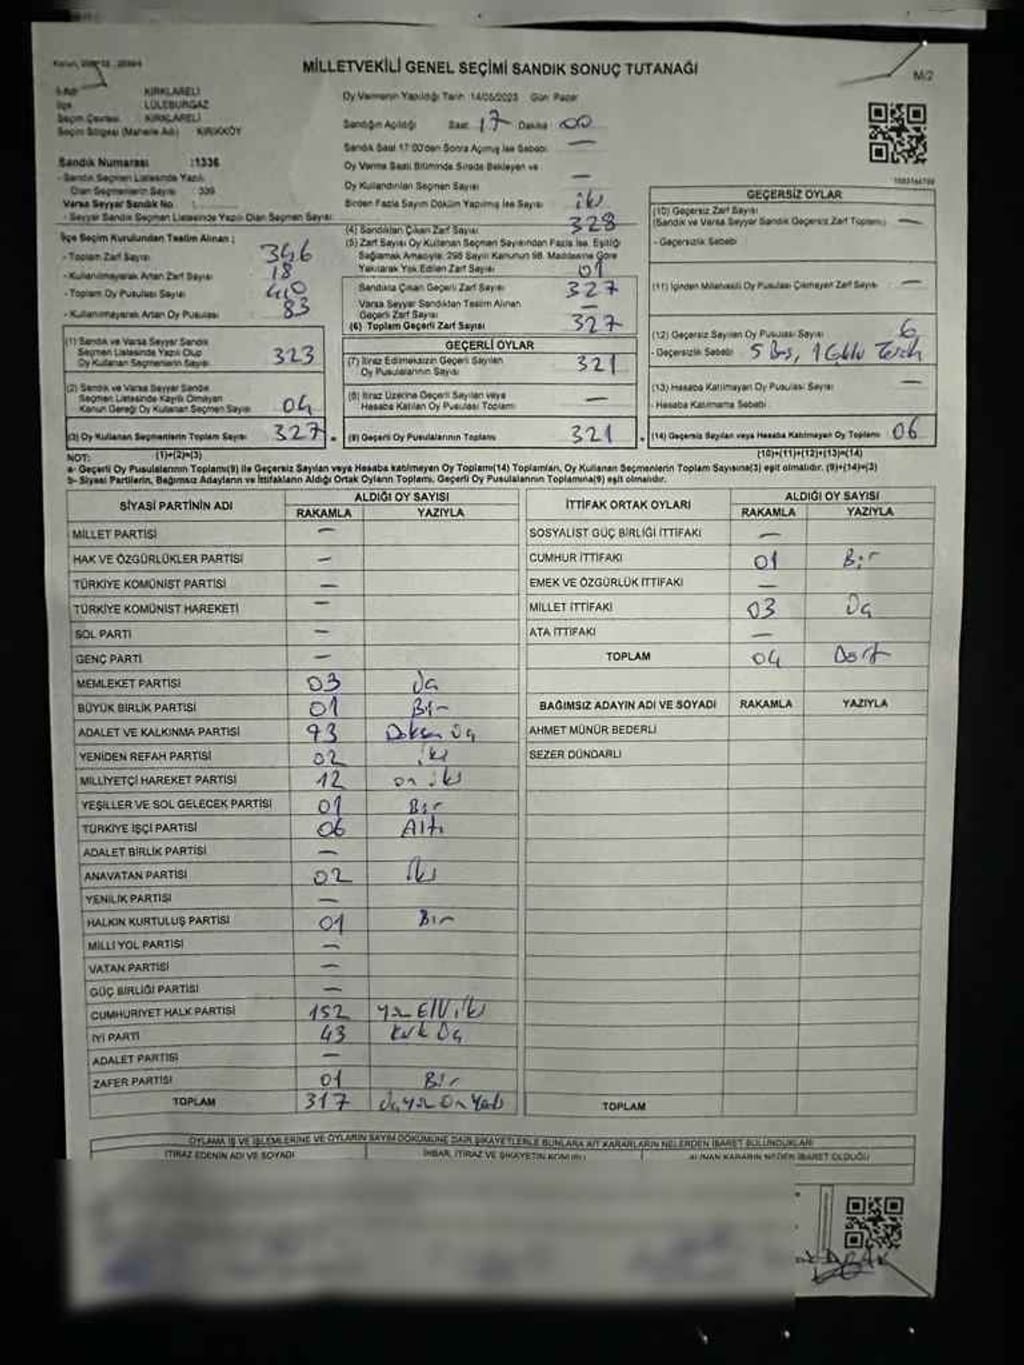 MİLLETVEKİLİ GENEL SEÇİMİ SANDIK SONUÇ TUTANAĞI
M/2
KIRKLARELİ
İlçe LÜLEBURGAZ
Seçim Çevresi KIRKLARELİ
Seçim Bölgesi (Mahalle Adı) KIRIKKÖY
Sandık Numarası :1336
- Sandık Seçmen Listesinde Yazılı
Olan Seçmenlerin Sayısı : 339
Varsa Seyyar Sandık No :
- Seyyar Sandık Seçmen Listesinde Yazılı Olan Seçmen Sayısı:
Oy Vermenin Yapıldığı Tarih :14/05/2023 Gün: Pazar
Sandığın Açıldığı Saat 17 Dakika 00
Sandık Saat 17:00'den Sonra Açılmış İse Sebebi: —
Oy Verme Saati Bitiminde Sırada Bekleyen ve
Oy Kullandırılan Seçmen Sayısı —
Birden Fazla Sayım Döküm Yapılmış İse Sayısı iki
İlçe Seçim Kurulundan Teslim Alınan ;
- Toplam Zarf Sayısı 346
- Kullanılmayarak Artan Zarf Sayısı 18
- Toplam Oy Pusulası Sayısı 410
- Kullanılmayarak Artan Oy Pusulası 83
(4) Sandıktan Çıkan Zarf Sayısı 328
(5) Zarf Sayısı Oy Kullanan Seçmen Sayısından Fazla İse, Eşitliği
Sağlamak Amacıyla; 298 Sayılı Kanunun 98. Maddesine Göre
Yakılarak Yok Edilen Zarf Sayısı 01
Sandıkta Çıkan Geçerli Zarf Sayısı 327
Varsa Seyyar Sandıktan Teslim Alınan
Geçerli Zarf Sayısı —
(6) Toplam Geçerli Zarf Sayısı 327
(1) Sandık ve Varsa Seyyar Sandık
Seçmen Listesinde Yazılı Olup
Oy Kullanan Seçmenlerin Sayısı 323
(2) Sandık ve Varsa Seyyar Sandık
Seçmen Listesinde Kayıtlı Olmayan
Kanun Gereği Oy Kullanan Seçmen Sayısı 04
(3) Oy Kullanan Seçmenlerin Toplam Sayısı 327
(1)+(2)=(3)
GEÇERLİ OYLAR
(7) İtiraz Edilmeksizin Geçerli Sayılan
Oy Pusulalarının Sayısı 321
(8) İtiraz Üzerine Geçerli Sayılan veya
Hesaba Katılan Oy Pusulası Toplamı —
(9) Geçerli Oy Pusulalarının Toplamı 321
GEÇERSİZ OYLAR
(10) Geçersiz Zarf Sayısı
(Sandık ve Varsa Seyyar Sandık Geçersiz Zarf Toplamı) —
- Geçersizlik Sebebi
(11) İçinden Milletvekili Oy Pusulası Çıkmayan Zarf Sayısı —
(12) Geçersiz Sayılan Oy Pusulası Sayısı 6
- Geçersizlik Sebebi 5 Boş, 1
(13) Hesaba Katılmayan Oy Pusulası Sayısı —
- Hesaba Katılmama Sebebi
(14) Geçersiz Sayılan veya Hesaba Katılmayan Oy Toplamı 06
(10)+(11)+(12)+(13)=(14)
NOT:
a- Geçerli Oy Pusulalarının Toplamı(9) ile Geçersiz Sayılan veya Hesaba katılmayan Oy Toplamı(14) Toplamları, Oy Kullanan Seçmenlerin Toplam Sayısına(3) eşit olmalıdır. (9)+(14)=(3)
b- Siyasi Partilerin, Bağımsız Adayların ve İttifakların Aldığı Ortak Oyların Toplamı, Geçerli Oy Pusulalarının Toplamına(9) eşit olmalıdır.
SİYASİ PARTİNİN ADI ALDIĞI OY SAYISI
RAKAMLA YAZIYLA
MİLLET PARTİSİ —
HAK VE ÖZGÜRLÜKLER PARTİSİ —
TÜRKİYE KOMÜNİST PARTİSİ —
TÜRKİYE KOMÜNİST HAREKETİ —
SOL PARTİ —
GENÇ PARTİ —
MEMLEKET PARTİSİ 03 Üç
BÜYÜK BİRLİK PARTİSİ 01 Bir
ADALET VE KALKINMA PARTİSİ 93 Doksan Üç
YENİDEN REFAH PARTİSİ 02 iki
MİLLİYETÇİ HAREKET PARTİSİ 12 on iki
YEŞİLLER VE SOL GELECEK PARTİSİ 01 Bir
TÜRKİYE İŞÇİ PARTİSİ 06 Altı
ADALET BİRLİK PARTİSİ —
ANAVATAN PARTİSİ 02 İki
YENİLİK PARTİSİ —
HALKIN KURTULUŞ PARTİSİ 01 Bir
MİLLİ YOL PARTİSİ —
VATAN PARTİSİ —
GÜÇ BİRLİĞİ PARTİSİ —
CUMHURİYET HALK PARTİSİ 152 Yüz Elli iki
İYİ PARTİ 43 Kırk Üç
ADALET PARTİSİ —
ZAFER PARTİSİ 01 Bir
TOPLAM 317 Üçyüz On Yedi
İTTİFAK ORTAK OYLARI ALDIĞI OY SAYISI
RAKAMLA YAZIYLA
SOSYALİST GÜÇ BİRLİĞİ İTTİFAKI —
CUMHUR İTTİFAKI 01 Bir
EMEK VE ÖZGÜRLÜK İTTİFAKI —
MİLLET İTTİFAKI 03 Üç
ATA İTTİFAKI —
TOPLAM 04 Dört
BAĞIMSIZ ADAYIN ADI VE SOYADI RAKAMLA YAZIYLA
AHMET MÜNÜR BEDERLİ
SEZER DÜNDARLI
TOPLAM
OYLAMA İŞ VE İŞLEMLERİNE VE OYLARIN SAYIM DÖKÜMÜNE DAİR ŞİKAYETLERLE BUNLARA AİT KARARLARIN NELERDEN İBARET BULUNDUKLARI
İTİRAZ EDENİN ADI VE SOYADI İHBAR, İTİRAZ VE ŞİKAYETİN KONUSU ALINAN KARARIN NEDEN İBARET OLDUĞU